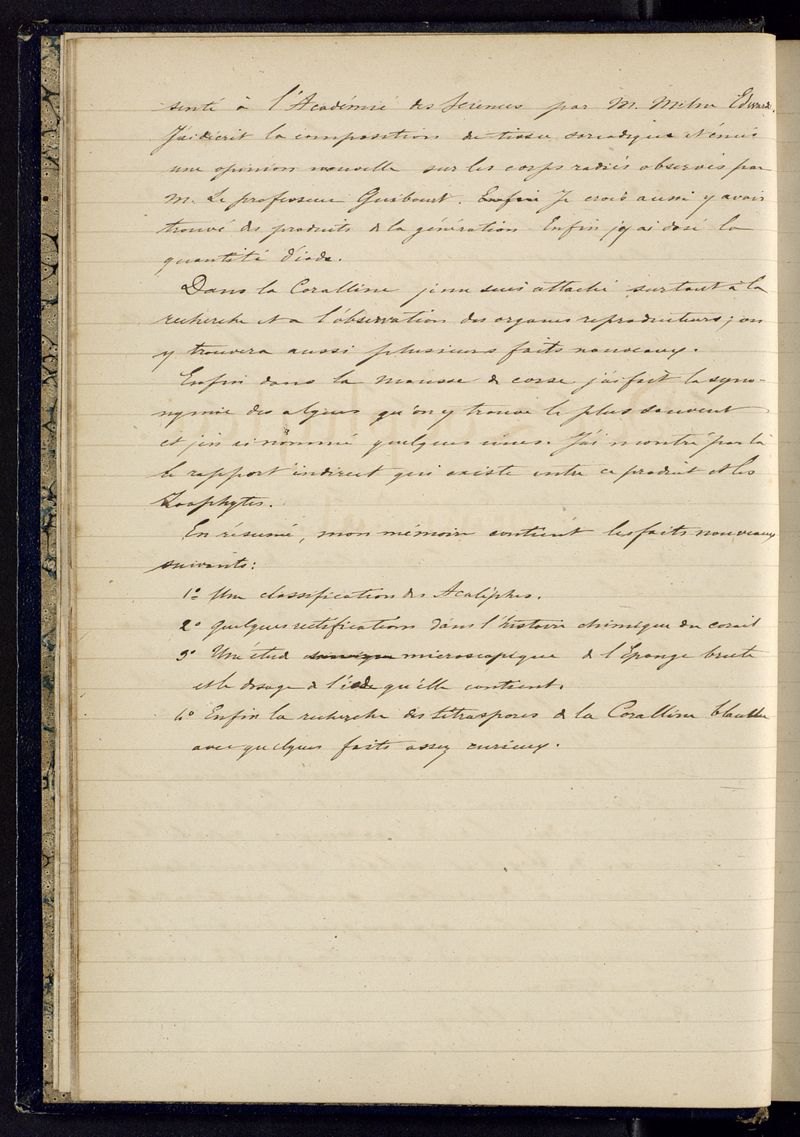 senté à l'Académie des Sciences par M. Milne Edwards.
J'ai décrit la composition du tissu sarcodique et émis
une opinion nouvelle sur les corps radiés observés par
M. Le professeur Guibourt. Enfin Je crois aussi y avoir
trouvé des produits de la génération Enfin j'y ai dosé la
quantité d'iode.
Dans la Coralline je me suis attaché surtout à la
recherche et a l'observation des organes reproducteurs; on
y trouvera aussi plusieurs faits nouveaux.
Enfin dans la mousse de corse j'ai fait la syno-
nymie des algues qu'on y trouve le plus souvent
et j'en ai nommé quelques unes. J'ai montré par là
le rapport indirect qui existe entre ce produit et les
Zoophytes.
En résumé, mon mémoire contient les faits nouveaux
suivants:
1º Une classification des Acalèphes.
2º Quelques rectifications dans l'histoire chimique du corail
3º Une étude microscopique de l'Eponge brute
et le dosage de l'iode qu'elle contient.
4º Enfin la recherche des tétraspores de la Coralline blanche
avec quelques faits assez curieux.